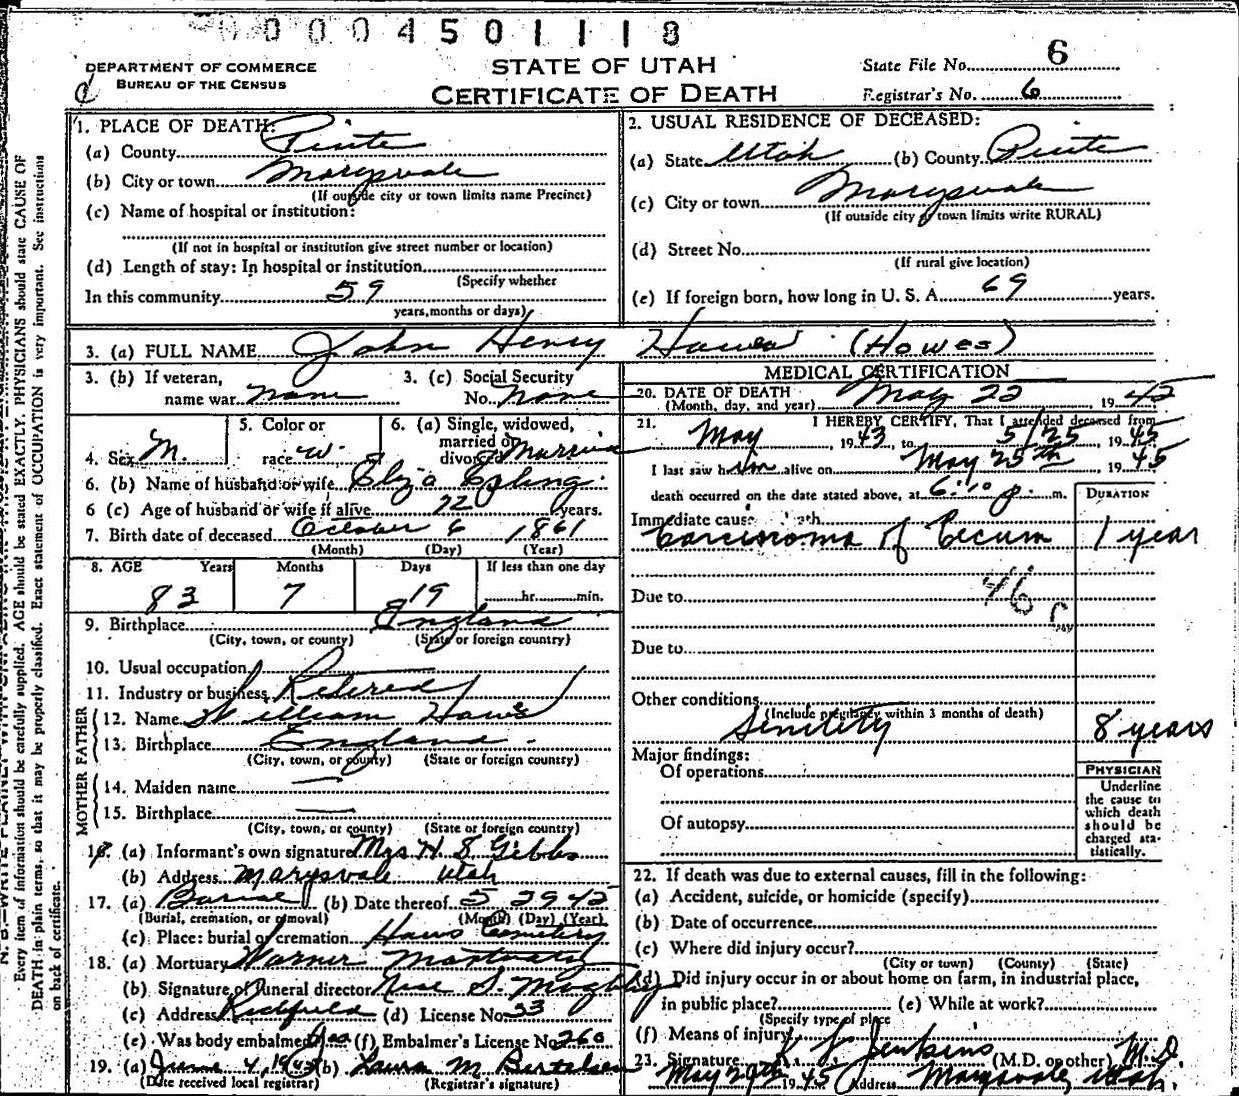 00004501118
DEPARTMENT OF COMMERCE
BUREAU OF THE CENSUS
STATE OF UTAH
CERTIFICATE OF DEATH
State File No. 6
Registrar's No. 6
N. B.—WRITE PLAINLY WITH UNFADING
Every item of information should be carefully supplied. AGE should be stated EXACTLY. PHYSICIANS should state CAUSE OF
DEATH in plain terms, so that it may be properly classified. Exact statement of OCCUPATION is very important. See instructions
on back of certificate.
1. PLACE OF DEATH:
(a) County Piute
(b) City or town Marysvale
(If outside city or town limits name Precinct)
(c) Name of hospital or institution:
(If not in hospital or institution give street number or location)
(d) Length of stay: In hospital or institution
(Specify whether
In this community 59
years, months or days)
2. USUAL RESIDENCE OF DECEASED:
(a) State Utah (b) County Piute
(c) City or town Marysvale
(If outside city or town limits write RURAL)
(d) Street No.
(If rural give location)
(e) If foreign born, how long in U. S. A. 69 years.
3. (a) FULL NAME John Henry Hawes (Howes)
3. (b) If veteran,
name war none
3. (c) Social Security
No. none
4. Sex M.
5. Color or
race w
6. (a) Single, widowed,
married or
divorced Married
6. (b) Name of husband or wife Eliza
6 (c) Age of husband or wife if alive 72 years.
7. Birth date of deceased October 6 1861
(Month) (Day) (Year)
8. AGE Years Months Days If less than one day
83 7 19 hr. min.
9. Birthplace England
(City, town, or county) (State or foreign country)
10. Usual occupation
11. Industry or business Retired
FATHER
12. Name William Haws
13. Birthplace England
(City, town, or county) (State or foreign country)
MOTHER
14. Maiden name —
15. Birthplace —
(City, town, or county) (State or foreign country)
16. (a) Informant's own signature Mrs H S Gibbs
(b) Address Marysvale Utah
17. (a) Burial (b) Date thereof 5 29 45
(Burial, cremation, or removal) (Month) (Day) (Year)
(c) Place: burial or cremation Haws Cemetery
18. (a) Mortuary Warner Mortuary
(b) Signature of funeral director
(c) Address Richfield (d) License No. 33
(e) Was body embalmed Yes (f) Embalmer's License No. 260
19. (a) June 4, 1945 (b) Laura M. Bertelsen
(Date received local registrar) (Registrar's signature)
MEDICAL CERTIFICATION
20. DATE OF DEATH May 25 1945
(Month, day, and year)
21. I HEREBY CERTIFY, That I attended deceased from
May 1943 to 5/25 1945
I last saw him alive on May 25th, 1945
death occurred on the date stated above, at 6:10 p. m.
DURATION
Immediate cause death
Carcinoma of Cecum 1 year
Due to 46
Due to
Other conditions
(Include pregnancy within 3 months of death)
Senility 8 years
Major findings:
Of operations
Of autopsy
PHYSICIAN
Underline
the cause to
which death
should be
charged sta-
tistically.
22. If death was due to external causes, fill in the following:
(a) Accident, suicide, or homicide (specify)
(b) Date of occurrence
(c) Where did injury occur?
(City or town) (County) (State)
(d) Did injury occur in or about home on farm, in industrial place,
in public place? (e) While at work?
(Specify type of place
(f) Means of injury
23. Signature Jenkins (M.D. or other) M.D.
May 29th 1945 Address Marysvale, Utah.